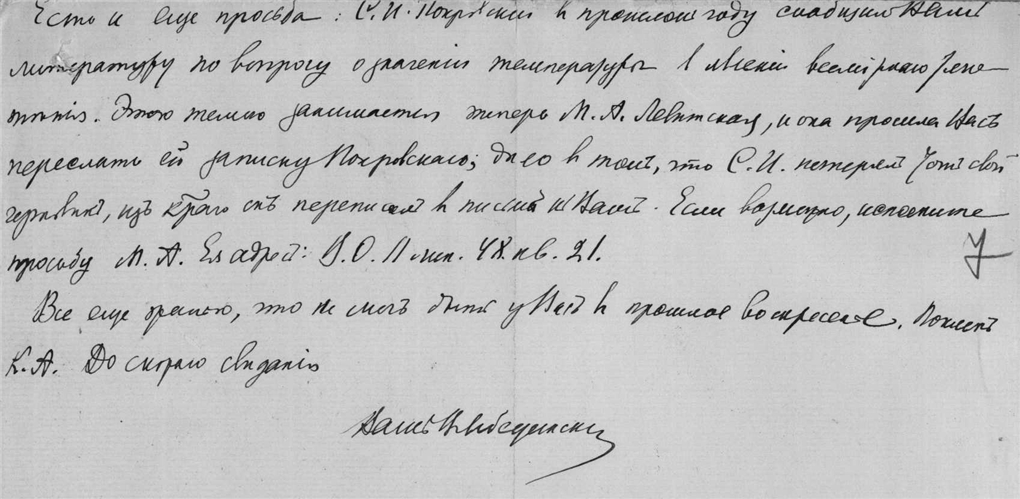 Есть и еще просьба: С. И. Покровскій въ прошломъ году сообщилъ Вамъ
литературу по вопросу о значеніи температуры въ явленіи всемірнаго тяго-
тѣнія. Этою темою занимается теперь М. А. Левитская, и она просила Васъ
переслать ей записку Покровскаго; дѣло въ томъ, что С. И. потерялъ свой
черновикъ, изъ котраго онъ переписалъ въ письмѣ къ Вамъ. Если возможно, исполните
просьбу М. А. Ея адресъ: В. О. 11 лин. 48. кв. 21.
7
Все еще жалѣю, что не могъ быть у Васъ въ прошлое воскресенье. Поклонъ
К. А. До скораго свиданія
Вашъ В. Лебединскій